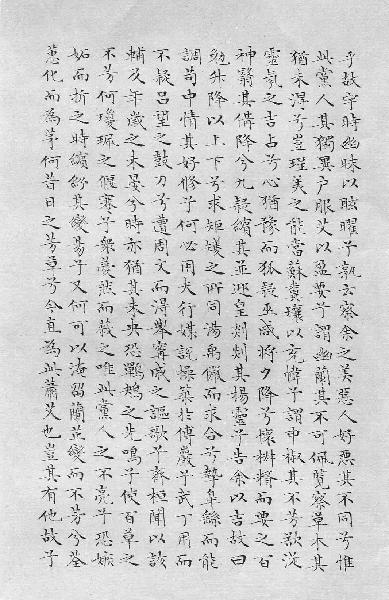 乎故宇時幽昧以眩曜兮孰云察余之美惡人好惡其不同兮惟
此黨人其獨異戶服艾以盈要兮謂幽蘭其不可佩覽察草木其
猶未得兮豈珵美之能當蘇糞壤以充幃兮謂申椒其不芳欲從
靈氛之吉占兮心猶豫而狐疑巫咸將夕降兮懷椒糈而要之百
神翳其備降兮九疑繽其並迎皇剡剡其揚靈兮告余以吉故曰
勉升降以上下兮求矩矱之所同湯禹儼而求合兮摯皋繇而能
調苟中情其好修兮何必用夫行媒說操築於傅巖兮武丁用而
不疑呂望之鼓刀兮遭周文而得舉甯戚之謳歌兮齊桓聞以該
輔及年歲之未晏兮時亦猶其未央恐鵜鴃之先鳴兮使百草之
不芳何瓊珮之偃蹇兮衆薆然而蔽之唯此黨人之不亮兮恐嫉
妬而折之時繽紛其變易兮又何可以淹留蘭芷變而不芳兮荃
蕙化而為茅何昔日之芳草兮今直為此蕭艾也豈其有他故兮